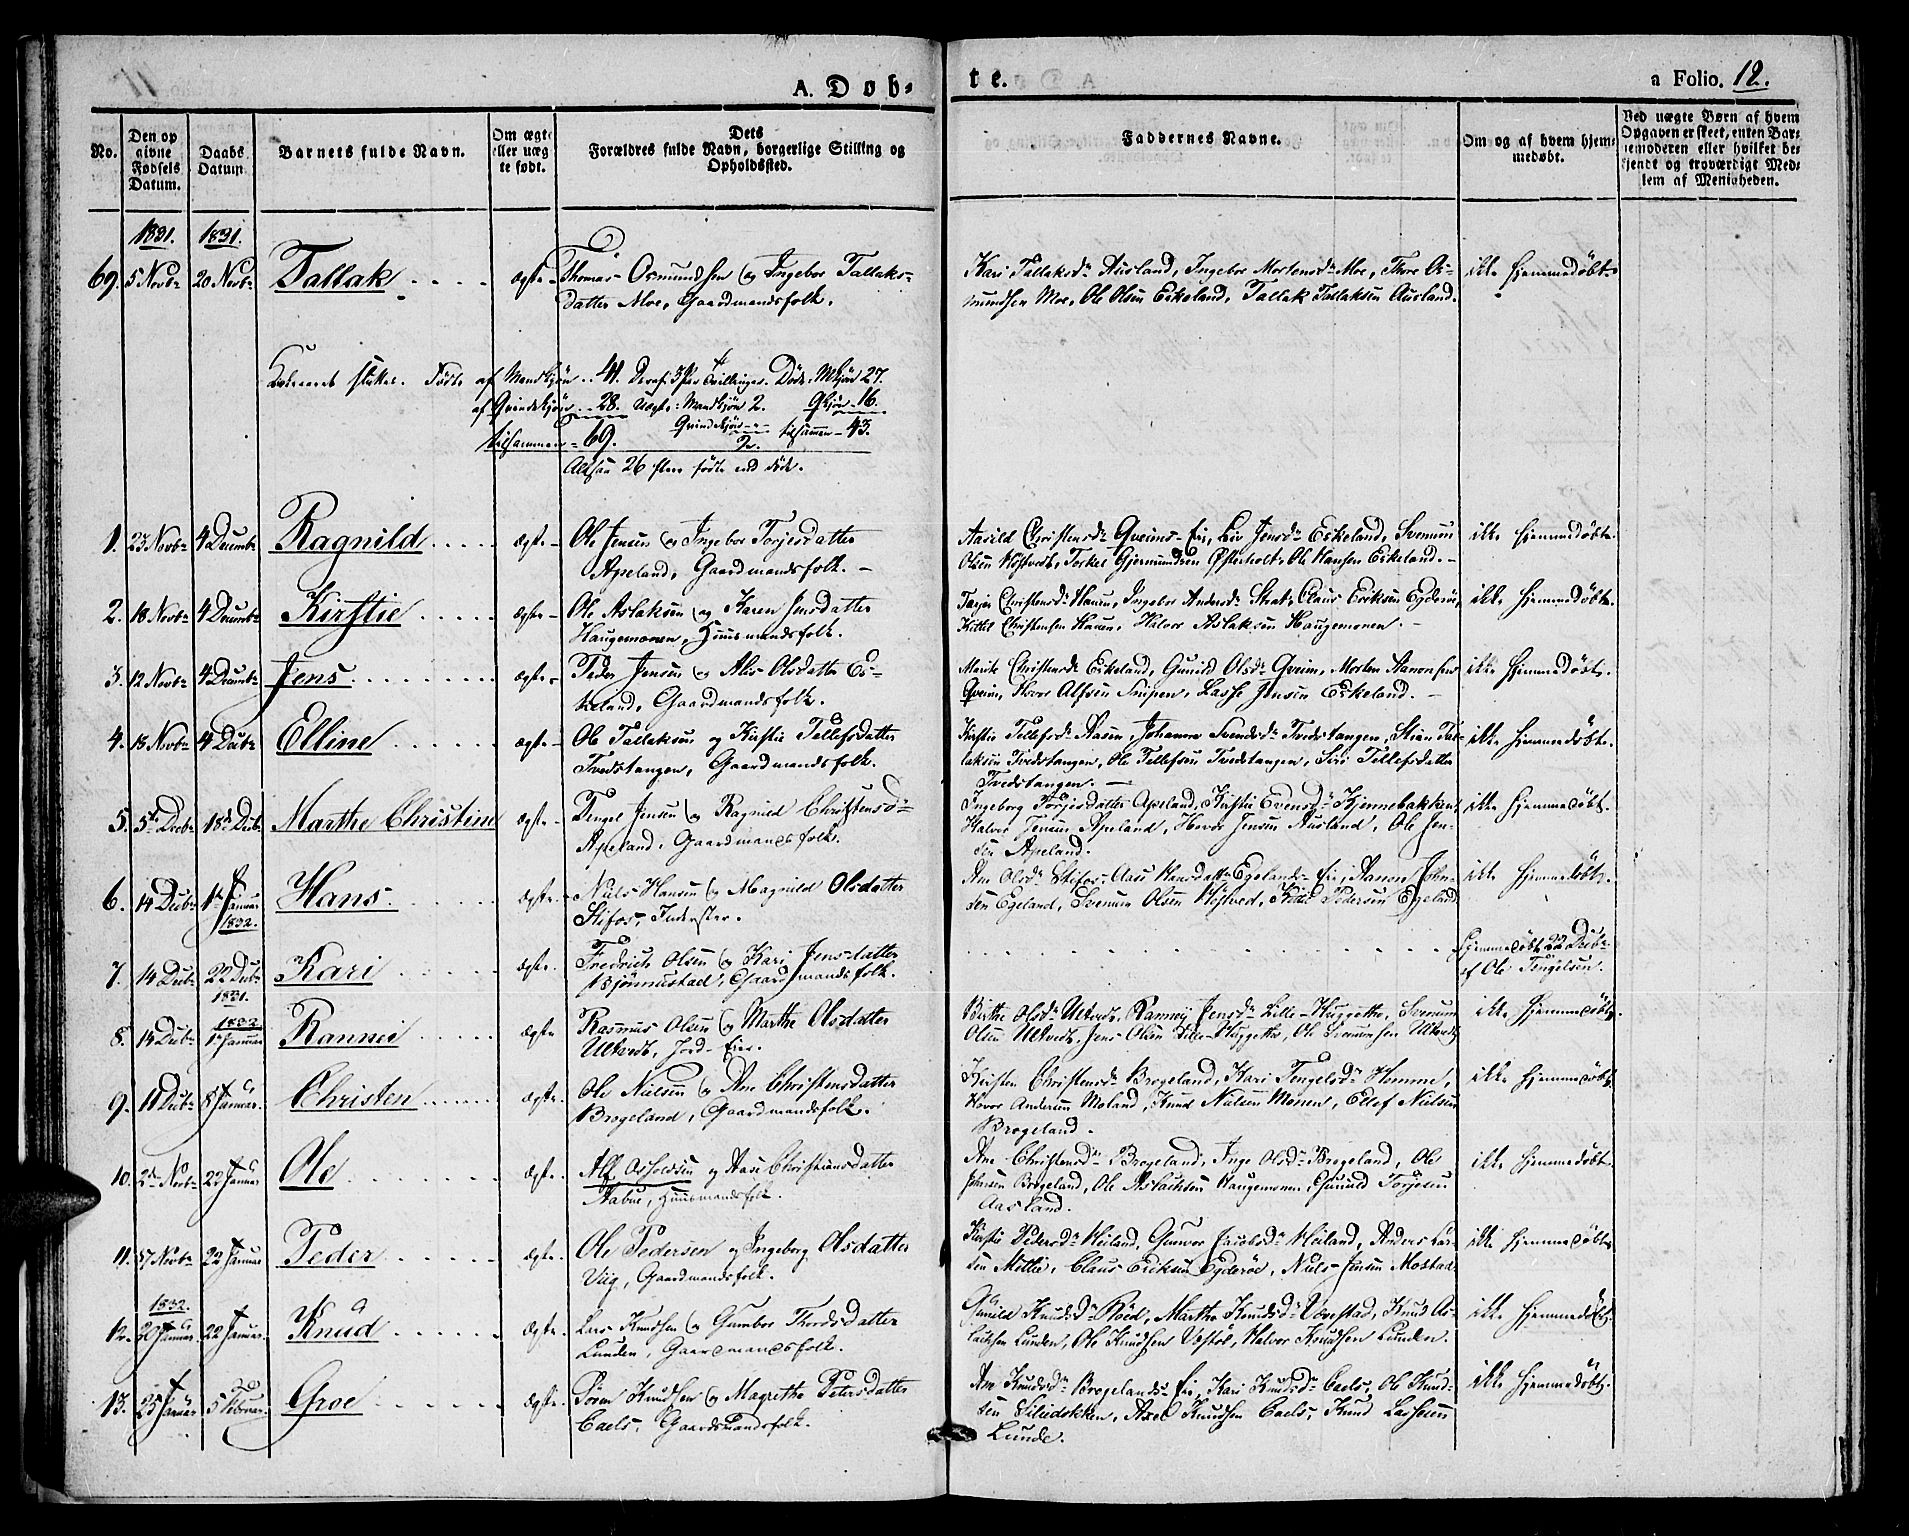 A. Døb-
te.
a Folio. 12.
No.
Den op
givne
Fødsels
Datum.
Daabs
Datum
Barnets fulde Navn.
Om ægte
eller uæg
te født.
Dets
Forældres fulde Navn, borgerlige Stilling og
Opholdssted.
Faddernes Navne.
Om og af hvem hjem-
medøbt.
Ved uægte Børn af hvem
Opgaven er skeet, enten Bar-
nemoderen eller hvilket be
kjendt og troværdigt Med-
lem af Menigheden.
1831. 1831.
69. 5 Novbr 20 Novbr Tallak ægte Thomas Osmundsen og Ingebor Tallaks-
datter Moe, Gaardmandsfolk.
Kari Tallaksdr Ausland, Ingebor Mortensdr Moe, Thore Os-
mundsen Moe, Ole Olsen Eskeland, Tallak Tallaksen Ausland.
ikke hjemmedøbt.
Kirkeaaret sluttet. Fødte af Mandkjøn .. 41. Deraf 3 Par Tvillinger. Døde: Mkjøn 27.
af Qvindekjøn .. 28. Uægte: Mandkjøn 2. Qkjøn 16.
tilsammen 69. Qvindekjøn - " - tilsammen - 43.
2.
Altsaa 26 flere fødte end døde.
1. 23 Novbr 4 Decembr Ragnild ægte Ole Jensen og Ingebor Torjesdatter
Apeland, Gaardmandsfolk.
Aasild Christensdr Qveims-Eie, Liv Jensdr Eskeland, Svenum
Olsen Høstvedt, Torkel Gjermundsen Østerholt, Ole Hansen Eskeland.
ikke hjemmedøbt.
2. 18 Novbr 4 Decembr Kirstie ægte Ole Aslaksen og Karen Jensdatter
Haugemonen, Huusmandsfolk.
Tarjer Christensdr Hauen, Ingebor Andersdr Strat, Claus Eriksen Egderøe,
Kittel Christensen Hauen, Halvor Aslaksen Haugemonen.
ikke hjemmedøbt.
3. 12 Novbr 4 Decembr Jens ægte Peder Jensen og Alis Olsdatter Es-
keland, Gaardmandsfolk.
Marite Christensdr Eskeland, Gunild Olsdr Qveim, Morten Aanonsen
Qveim, Hovor Alfsen Snipen, Lasse Jensen Eskeland.
ikke hjemmedøbt.
4. 18 Novbr 4 Decbr Elline ægte Ole Tallaksen og Kirstie Tellefsdatter
Tvedstangen, Gaardmandsfolk.
Kirstie Tellefsdr Aasen, Johanne Svendsdr Tvedstangen, Stian Tal-
laksen Tvedstangen, Ole Tellefsen Tvedstangen, Siri Tellefsdatter
Tvedstangen.
ikke hjemmedøbt.
5. 5te Decbr 18de Decbr Marthe Christine ægte Tengel Jensen og Ragnild Christensdr
Apeland, Gaardmandsfolk.
Ingeborg Torjesdatter Apeland, Kirstie Evensdr Kjennebakken,
Halvor Jensen Apeland, Hovor Jensen Ausland, Ole Jen-
sen Apeland.
ikke hjemmedøbt.
6. 14 Decbr 1ste Januar
1832. Hans ægte Niels Hansen og Magnild Olsdatter
Stifos, Inderster.
Ane Olsdr Stifos, Aase Hansdatter Egelands-Eie, Aanon John-
sen Egeland, Svenum Olsen Høstved, Peder Pedersen Egeland
ikke hjemmedøbt.
7. 14 Decbr 22 Decbr
1831. Kari ægte Fredrich Olsen og Kari Jensdatter
Bjønnestad, Gaardmandsfolk.
Hjemmedøbt 22 Decbr
af Ole Tengelsen.
8. 14 Decbr 1832
1ste Januar Rannei ægte Rasmus Olsen og Marthe Olsdatter
Ultvedt, Jord-Eier.
Birthe Olsdr Ultvedt, Rannei Jensdr Lille-Huggethe, Svenum
Olsen Ultvedt, Jens Olsen Lille-Huggethe, Ole Svenumsen Ultvedt
ikke hjemmedøbt.
9. 11 Decbr 8 Januar. Christen ægte Ole Nielsen og Ane Christensdatter
Brøgeland, Gaardmandsfolk.
Kirsten Christensdr Brøgeland, Kari Tengelsdr Homme,
Hovor Andersen Moland, Knud Nielsen Monen, Ellef Nielsen
Brøgeland.
ikke hjemmedøbt
10. 2den Novbr 22 Januar Ole ægte Alf Osoldsen og Aase Christiansdatter
Aabue, Huusmandsfolk.
Ane Christensdr Brøgeland, Inge Olsdr Brøgeland, Ole
Jensen Brøgeland, Ole Aslachsen Haugemonen, Osmund Torjesen
Aasland.
ikke hjemmedøbt.
11. 17 Novbr 22 Januar Peder ægte Ole Pedersen og Ingeborg Olsdatter
Viig, Gaardmandsfolk.
Kirstie Pedersdr Heiland, Gunvor Jacobsdr Heiland, Anders Lar-
sen Mettle, Claus Eriksen Egderøe, Niels Jensen Mostad
ikke hjemmedøbt
1832.
12. 20 Januar 22 Januar. Knud ægte Lars Knudsen og Gunbor Thordsdatter
Lunden, Gaardmandsfolk.
Gunild Knudsdr Røed, Marthe Knudsdr Vovestad, Knud As-
lachsen Lunden, Ole Knudsen Vestøl, Halvor Knudsen Lunden.
ikke hjemmedøbt.
13. 25 Januar 5 Februar. Groe ægte Søren Knudsen og Magrethe Petersdatter
Caels, Gaardmandsfolk.
Ane Knudsdr Brøgelands-Eie, Kari Knudsdr Caels, Ole Knud-
sen Siliedokken, Axel Knudsen Caels, Knud Larsen
Lunde.
ikke hjemmedøbt,